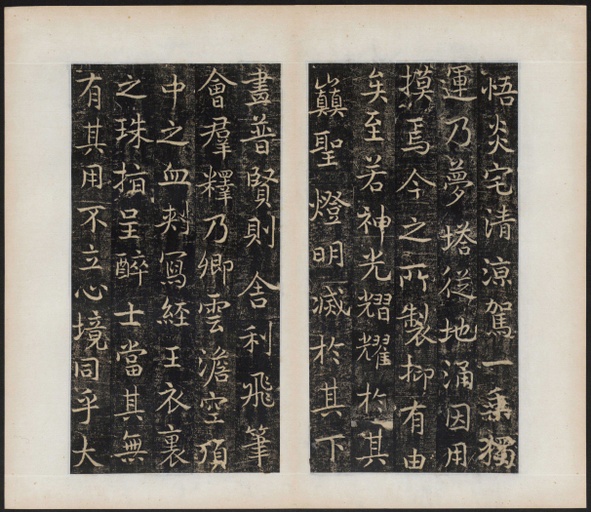 悟炎宅清涼駕一乗獨
運乃夢塔從地涌因用
摸焉今之所製抑有由
矣至若神光熠耀於其
巔聖燈明滅於其下
畫普賢則舍利飛筆
會羣釋乃卿雲澹空頂
中之血刺寫經王衣裏
之珠指呈醉士當其無
有其用不立心境同乎大